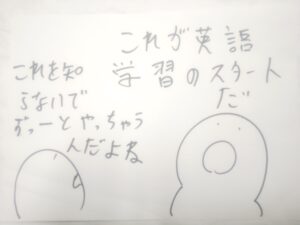 これが英語
学習のスタート
だ
これを知
らないで
ずっーとやっちゃう
んだよね